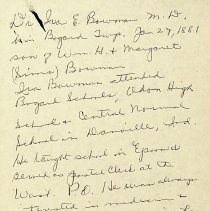 Dr. Ira E. Bowman M.D.
born Bogard Twp. Jan 27, 1881
son of Wm. H. & Margaret
(Sims) Bowman
Ira Bowman attended
Bogard Schools, Odon High
School & Central Normal
School in Danville, Ind.
He taught school in Epsom &
served as postal clerk at the
Wash. P.O. He was always
interested in medicine &